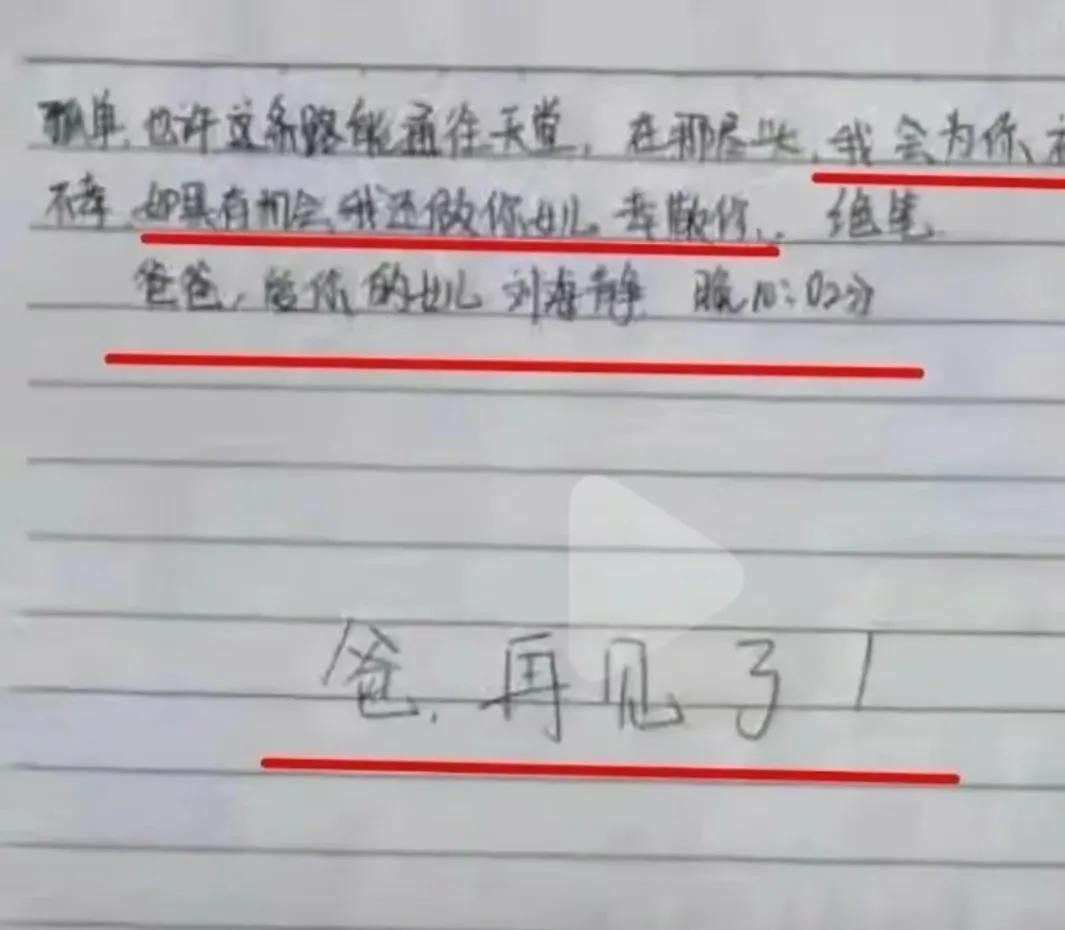 孤单,也许这条路能通往天堂,在那尽头,我会为你、祈
不幸,如果有机会,我还做你女儿,孝敬你..绝笔
爸爸,给你的女儿 刘海静 晚10:02分
爸,再见了!